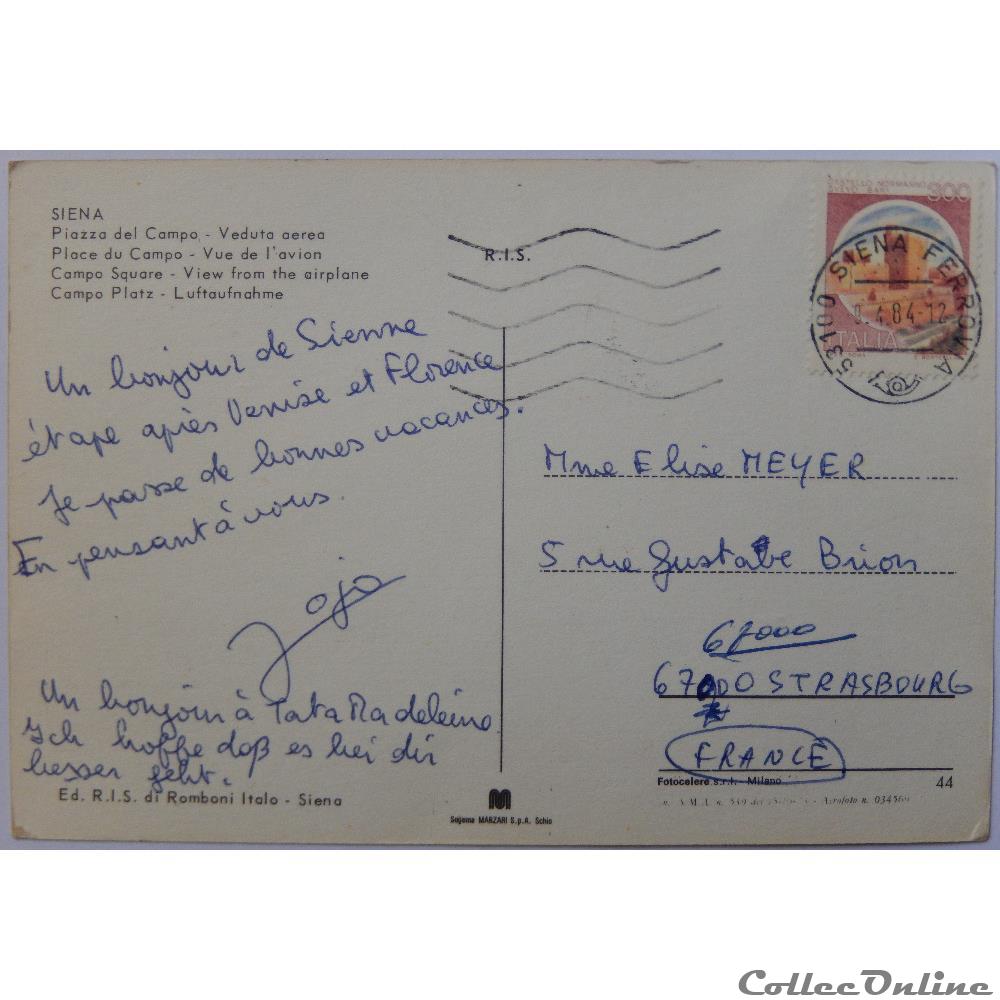 SIENA
Piazza del Campo - Veduta aerea
Place du Campo - Vue de l'avion
Campo Square - View from the airplane
Campo Platz - Luftaufnahme
R.I.S.
CASTELLO NORMANNO
SVEVO BARI
300
ITALIA
53100 SIENA FERROVIA
9.4.84-12
Un bonjour de Sienne
étape après Venise et Florence
Je passe de bonnes vacances.
En pensant à vous.
Jojo
Un bonjour à Tata Madeleine
Ich hoffe daß es bei dir
besser geht.
Mme Elise MEYER
5 rue Gustave Brion
67000
67000 STRASBOURG
FRANCE
Fotocelere s.r.l. - Milano
44
Aerofoto n. 034560
Ed. R.I.S. di Romboni Italo - Siena
M
Sagoma MARZARI S.p.A. Schio
CollecOnline